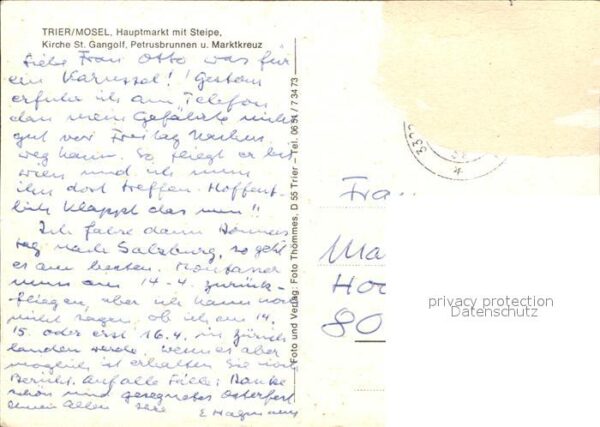 TRIER/MOSEL, Hauptmarkt mit Steipe,
Kirche St. Gangolf, Petrusbrunnen u. Marktkreuz
Liebe Frau Otto was für
ein Karussel! Gestern
erfuhr ich am Telefon
dass mein Gefährte nicht
gut vor Freitag
weg kann. So fliegt er bis
Wien und ich muss
ihn dort treffen. Hoffent-
lich klappt das nun!!
Ich fahre dann Donners
tag nach Salzburg, so geht
es am besten.
muss am 14.4. zurück-
fliegen, aber ich kann noch
nicht sagen ob ich am 14.
15. oder erst 16.4. in Zürich
landen werde. Wenn es aber
möglich ist erhalten Sie noch
Bericht. Auf alle Fälle: Danke
schön und gesegnetes Osterfest
Ihnen Allen
Foto und Verlag: Foto Thömmes, D 55 Trier – Tel. 06 51 / 7 34 73
Fra
Ma
Ho
80
privacy protection
Datenschutz